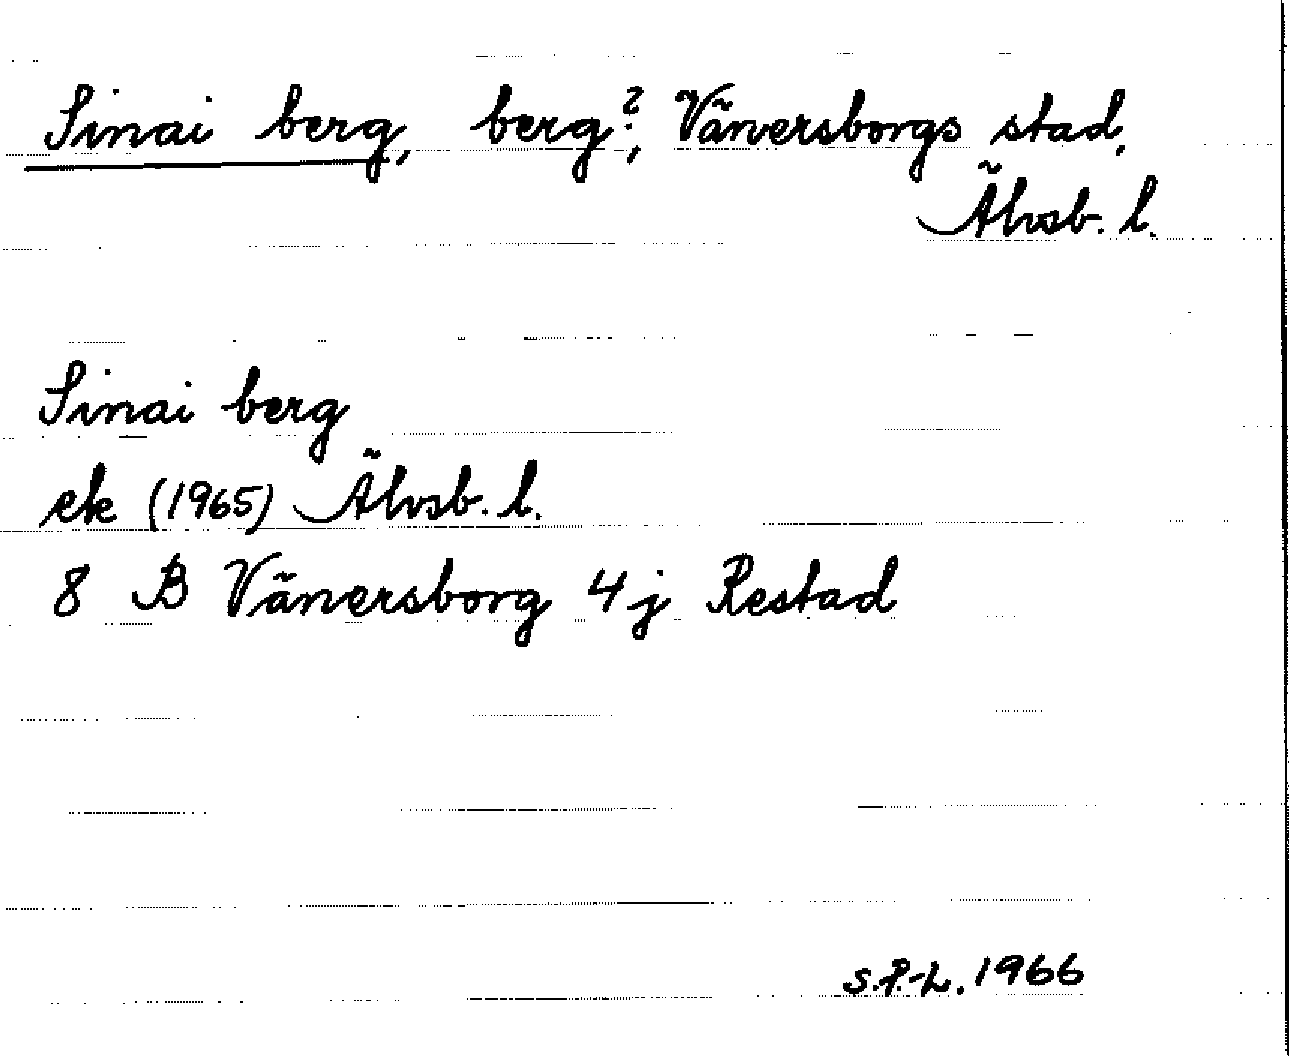 Sinai berg, berg?, Vänersborgs stad,
Älvsb. l.
Sinai berg
ek (1965) Älvsb. l.
8 B Vänersborg 4j Restad
S.P.-L. 1966